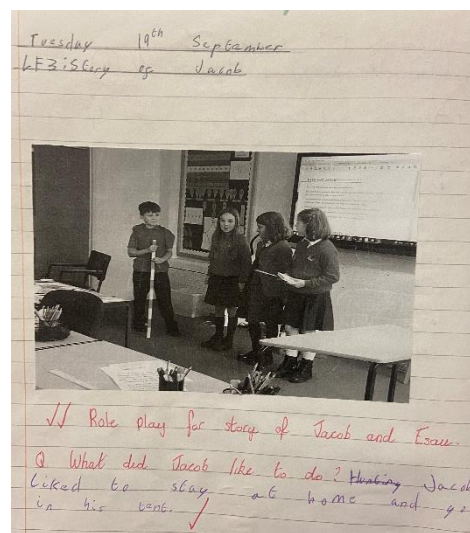 Tuesday 19th September
LF3: Story of Jacob
Role play for story of Jacob and Esau.
Q What did Jacob like to do? Hunting Jacob
liked to stay at home and
in his tent.